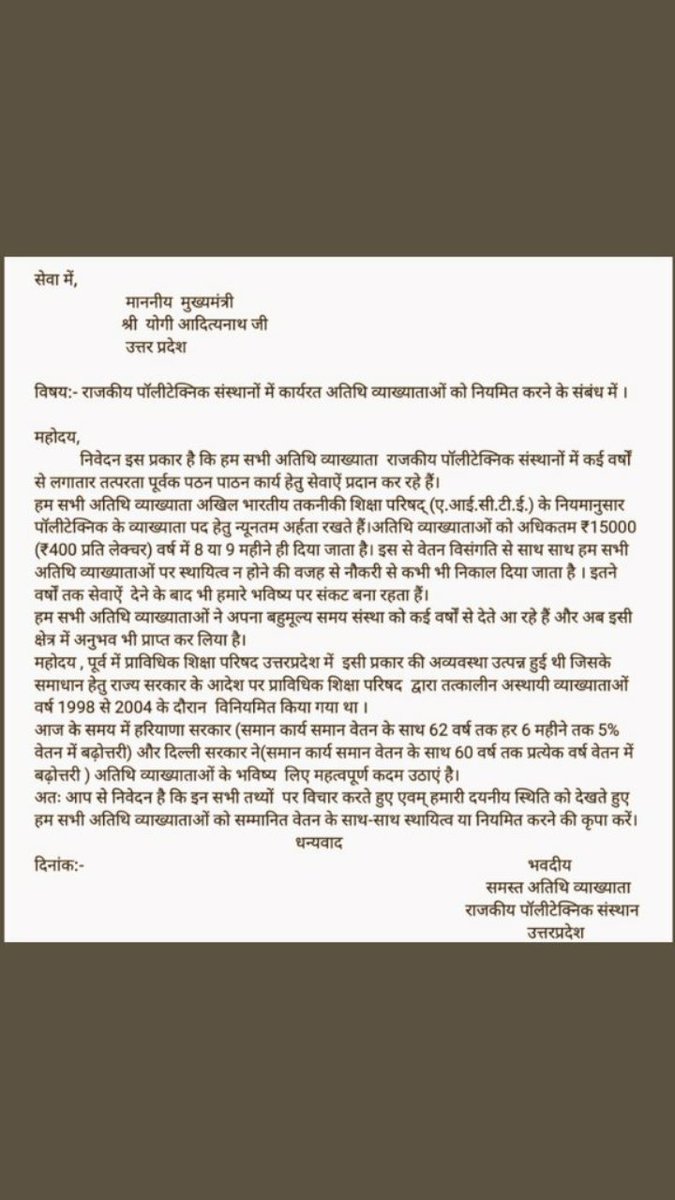 सेवा में,
माननीय मुख्यमंत्री
श्री योगी आदित्यनाथ जी
उत्तर प्रदेश
विषय:- राजकीय पॉलीटेक्निक संस्थानों में कार्यरत अतिथि व्याख्याताओं को नियमित करने के संबंध में ।
महोदय,
निवेदन इस प्रकार है कि हम सभी अतिथि व्याख्याता राजकीय पॉलीटेक्निक संस्थानों में कई वर्षों
से लगातार तत्परता पूर्वक पठन पाठन कार्य हेतु सेवाऐं प्रदान कर रहे हैं।
हम सभी अतिथि व्याख्याता अखिल भारतीय तकनीकी शिक्षा परिषद् (ए.आई.सी.टी.ई.) के नियमानुसार
पॉलीटेक्निक के व्याख्याता पद हेतु न्यूनतम अर्हता रखते हैं।अतिथि व्याख्याताओं को अधिकतम ₹15000
(₹400 प्रति लेक्चर) वर्ष में 8 या 9 महीने ही दिया जाता है। इस से वेतन विसंगति से साथ साथ हम सभी
अतिथि व्याख्याताओं पर स्थायित्व न होने की वजह से नौकरी से कभी भी निकाल दिया जाता है । इतने
वर्षों तक सेवाऐं देने के बाद भी हमारे भविष्य पर संकट बना रहता हैं।
हम सभी अतिथि व्याख्याताओं ने अपना बहुमूल्य समय संस्था को कई वर्षों से देते आ रहे हैं और अब इसी
क्षेत्र में अनुभव भी प्राप्त कर लिया है।
महोदय , पूर्व में प्राविधिक शिक्षा परिषद उत्तरप्रदेश में इसी प्रकार की अव्यवस्था उत्पन्न हुई थी जिसके
समाधान हेतु राज्य सरकार के आदेश पर प्राविधिक शिक्षा परिषद द्वारा तत्कालीन अस्थायी व्याख्याताओं
वर्ष 1998 से 2004 के दौरान विनियमित किया गया था ।
आज के समय में हरियाणा सरकार (समान कार्य समान वेतन के साथ 62 वर्ष तक हर 6 महीने तक 5%
वेतन में बढ़ोत्तरी) और दिल्ली सरकार ने(समान कार्य समान वेतन के साथ 60 वर्ष तक प्रत्येक वर्ष वेतन में
बढ़ोत्तरी ) अतिथि व्याख्याताओं के भविष्य लिए महत्वपूर्ण कदम उठाएं है।
अतः आप से निवेदन है कि इन सभी तथ्यों पर विचार करते हुए एवम् हमारी दयनीय स्थिति को देखते हुए
हम सभी अतिथि व्याख्याताओं को सम्मानित वेतन के साथ-साथ स्थायित्व या नियमित करने की कृपा करें।
धन्यवाद
दिनांक:-
भवदीय
समस्त अतिथि व्याख्याता
राजकीय पॉलीटेक्निक संस्थान
उत्तरप्रदेश